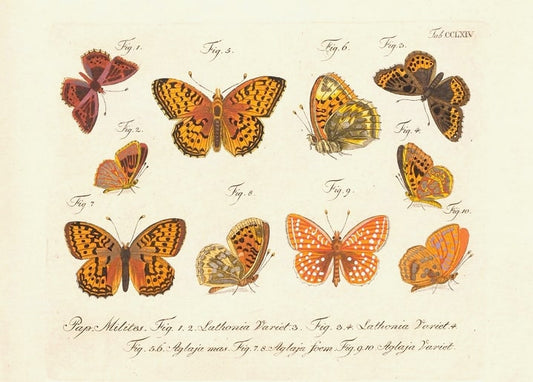 Tab. CCLXIV
Fig. 1.
Fig. 5.
Fig. 6.
Fig. 3.
Fig. 2.
Fig. 4.
Fig. 7
Fig. 8.
Fig. 9.
Fig. 10.
Pap. Milites. Fig. 1. 2. Lathonia Variet. 3. Fig. 3. 4. Lathonia Variet. 4.
Fig. 5.6. Aglaja mas. Fig. 7. 8. Aglaja foem. Fig. 9. 10. Aglaja Variet.